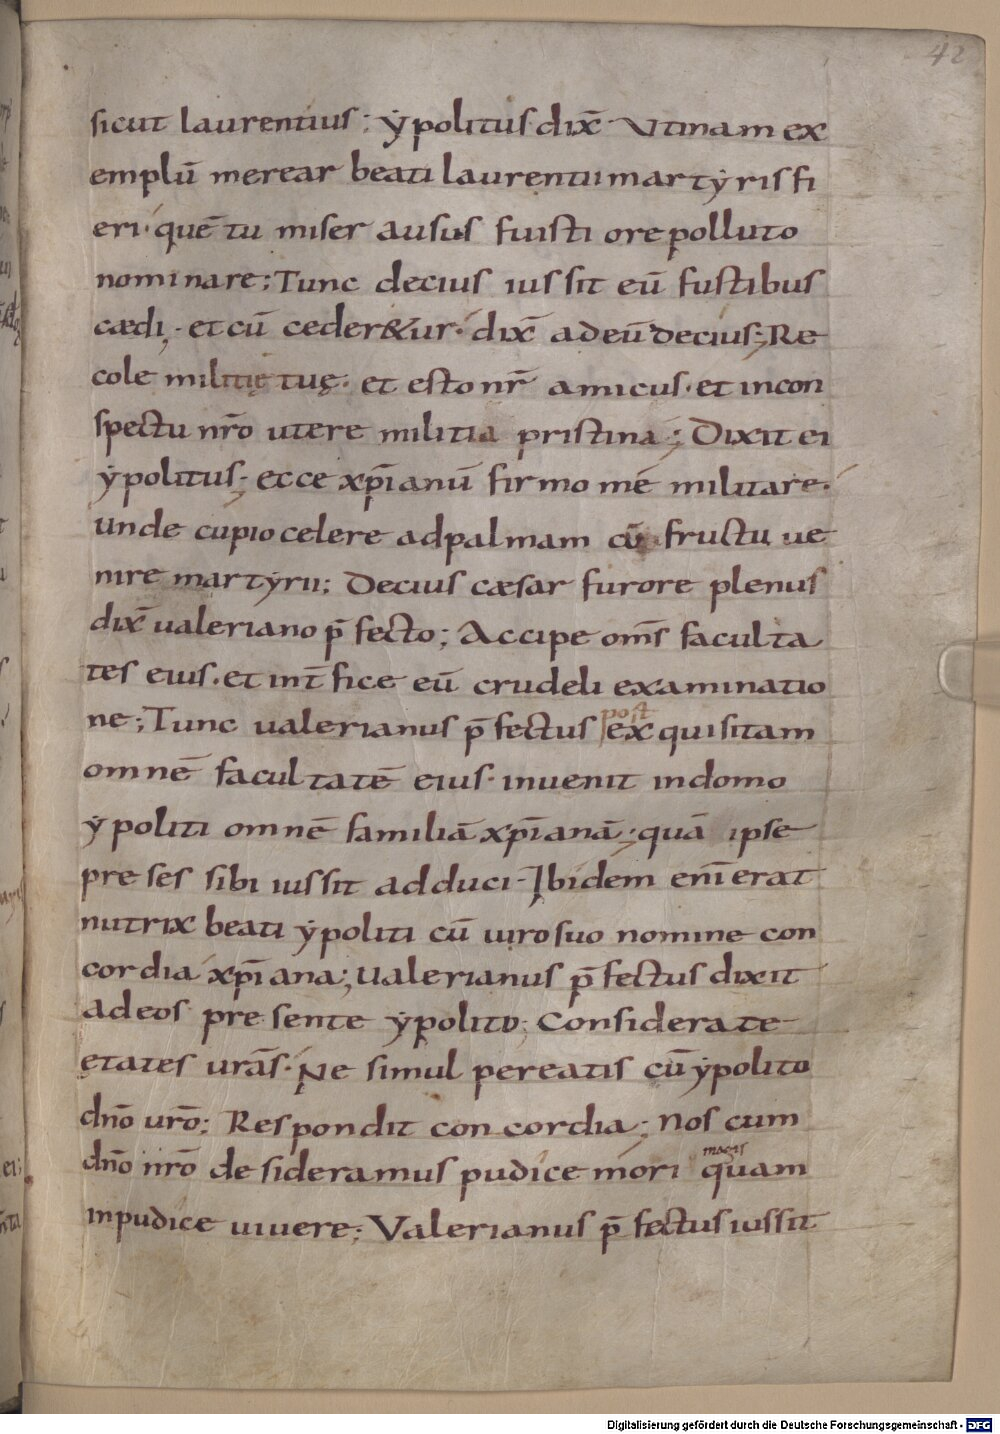 42
sicut laurentius; ẏpolitus dix̄ Vtinam ex
emplū merear beati laurentii martẏris fi
eri· quē tu miser ausus fuisti ore polluto
nominare; Tunc decius iussit eū fustibus
cædi, et cū ceder&ur· dix̄ ad eū decius; Re
cole militię tuę· et esto nr̄ amicus· et in con
spectu nr̄o utere militia pristina; Dixit ei
ẏpolitus; ecce xp̄ianū firmo mē militare·
unde cupio celere ad palmam cū fructu ue
nire martẏrii; Decius cæsar furore plenus
dix̄ ualeriano p̄fecto; Accipe om̄s faculta
tes eius· et int̄fice eū crudeli examinatio
ne; Tunc ualerianus p̄fectus post exquisitam
omnē facultatē eius· inuenit in domo
ẏpoliti omnē familiā xp̄ianā; quā ipse
preses sibi iussit adduci· Ibidem enī erat
nutrix beati ẏpoliti cū uiro suo nomine con
cordia xp̄iana; ualerianus p̄fectus dixit
ad eos presente ẏpolito; Considerate
ętates urās· Ne simul pereatis cū ẏpolito
dn̄o ur̄o; Respondit concordia; Nos cum
dn̄o nr̄o desideramus pudice mori magis quam
inpudice uiuere; Valerianus p̄fectus iussit
Digitalisierung gefördert durch die Deutsche Forschungsgemeinschaft - DFG